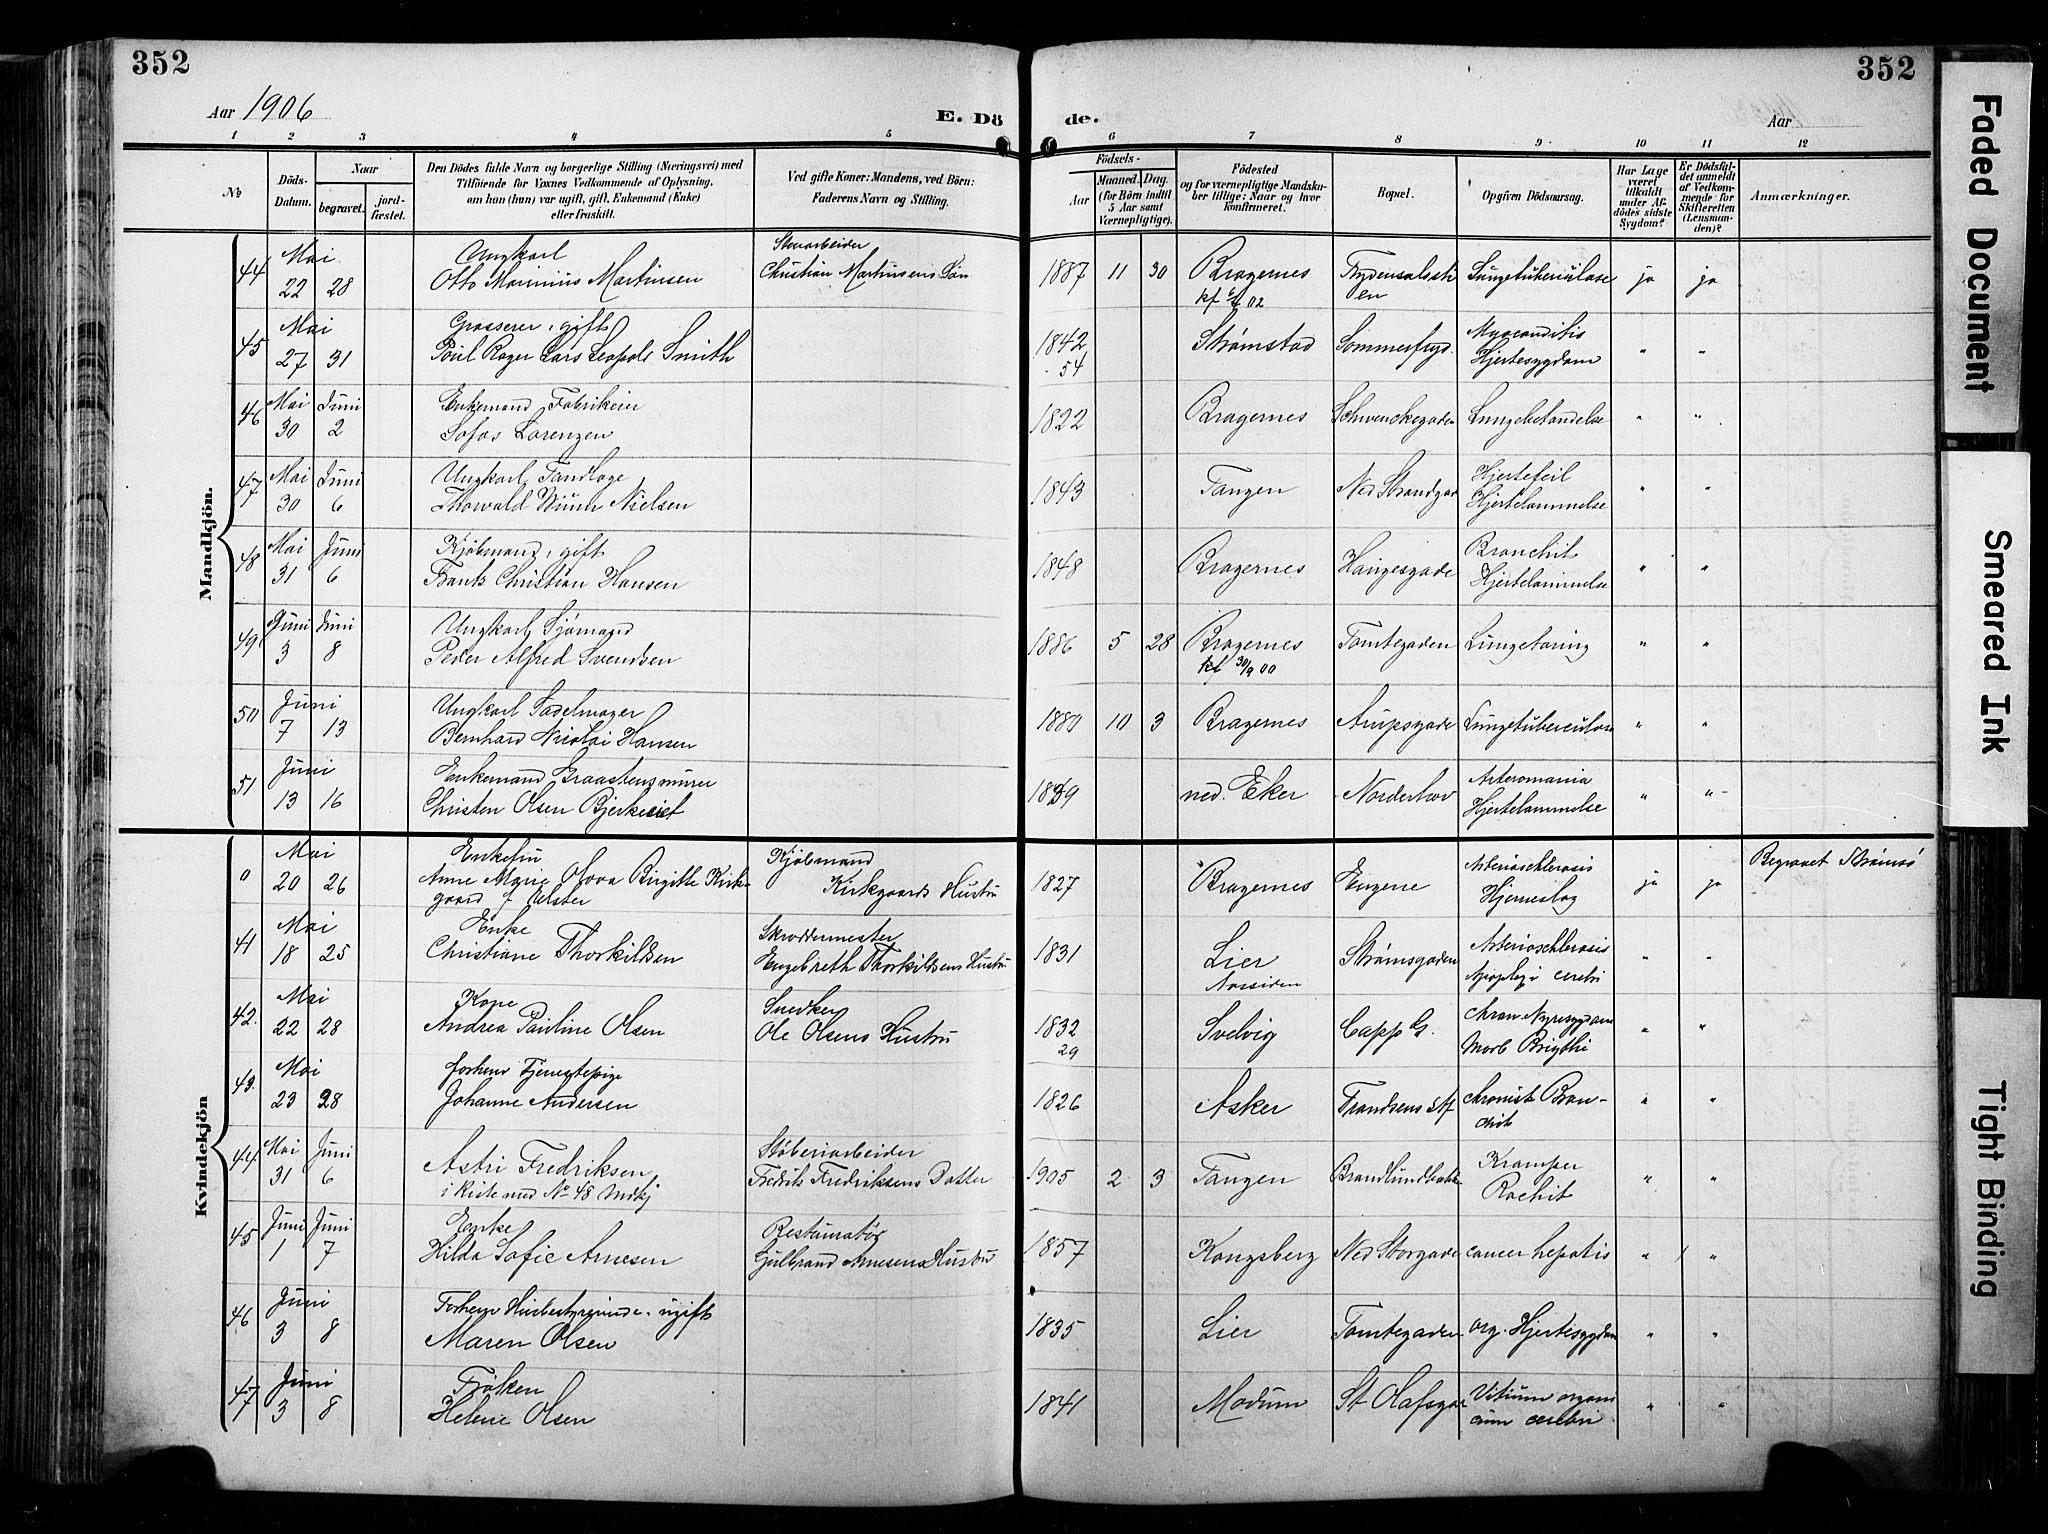 352
352
Aar 1906
E. Dö
de.
Aar
1 2 3 4 5 6 7 8 9 10 11 12
No
Döds-Datum.
Naar
begravet.
jordfæstet.
Den Dödes fulde Navn og borgerlige Stilling (Næringsvei) med
Tilföiende for Voxnes Vedkommende af Oplysning,
om han (hun) var ugift, gift, Enkemand (Enke)
eller fraskilt.
Ved gifte Koner: Mandens, ved Börn:
Faderens Navn og Stilling.
Födsels-
Aar
Maaned. Dag.
(for Börn indtil
5 Aar samt
Værnepligtige).
Födested
og for værnepligtige Mandskaber tillige: Naar og hvor
konfirmeret.
Bopæl.
Opgiven Dödsaarsag.
Har Læge
været
tilkaldt
under Afdödes sidste
Sygdom?
Er Dödsfaldet anmeldt
af Vedkommende for
Skifteretten
(Lensmanden)?
Anmærkninger.
Mandkjön.
44 Mai 22 28 Ungkarl Otto Marinius Martinsen Christian Martinsens Søn 1887 11 30 Bragernes kf 02 Lungetuberculose ja ja
45 Mai 27 31 Grosserer, gift Poul Roger Lars Leopold Smith 1842 54 Strømstad Sommerfryd Hjertesygdom " "
46 Mai 30 Juni 2 Enkemand Sofus Lorenzen 1822 Bragernes Schwenckegaden Lungebetændelse " "
47 Mai 30 Juni 6 Ungkarl Tandlæge Thorvald Nielsen 1843 Tangen Ned Strandgad Hjertefeil Hjertelammelse " "
48 Mai 31 Juni 6 Kjøbmand, gift Frantz Christian Hansen 1848 Bragernes Haugesgade Bronchit Hjertelammelse " "
49 Juni 3 Juni 8 Ungkarl Sjømand Peder Alfred Svendsen 1886 5 28 Bragernes kf 30/9 00 Tomtegaden Lungetæring " "
50 Juni 7 13 Ungkarl Sadelmager Bernhard Nicolai Hansen 1880 10 3 Bragernes Arupsgade Lungetuberculose " "
51 Juni 13 16 Enkemand Graastensmurer Christen Olsen 1839 ned. Eker Norderhov Hjertelammelse " "
Kvindekjön
0 Mai 20 26 Enkefru Anne Marie Olava Birgitte Kirkgaard f Kjøbmand Kirkgaards Hustru 1827 Bragernes Engene Arterioschlerosis Hjerneslag ja ja Begravet Strømsø
41 Mai 18 25 Enke Christiane Thorkildsen Skræddermester Engebreth Thorkildsens Hustru 1831 Lier Strømsgaden Arterioschlerosis Apoplexi cerebri " "
42. Mai 22 28 Kone Andrea Pauline Olsen Snedker Ole Olsens Hustru 1832 29 Svelvig Capp G. chron. Nyresygdom Morb Brigthi " "
43. Mai 23 28 forhenv Tjenestepige Johanne Andersen 1826 Asker Frandsens St chronisk Bronchit " "
44 Mai 31 Juni 6 Astri Fredriksen i Kiste med No 48 Mdkj Støberiarbeider Fredrik Fredriksens Datter 1905 2 3 Tangen Brandlundbakk Kramper Rachit " "
45 Juni 1 Juni 7 Enke Hilda Sofie Arnesen Restauratør Gulbrand Arnesens Hustru 1857 Kongsberg Ned Storgade cancer hepatis " "
46 Juni 3 8 Forhenv Husbestyrerinde. ugift Maren Olsen 1835 Lier Tomtegaden org. Hjertesygdom " "
47 Juni 3 8 Frøken Helene Olsen 1841 Modum St Olafsgad Vitium organicum cerebri " "
Faded Document
Smeared Ink
Tight Binding